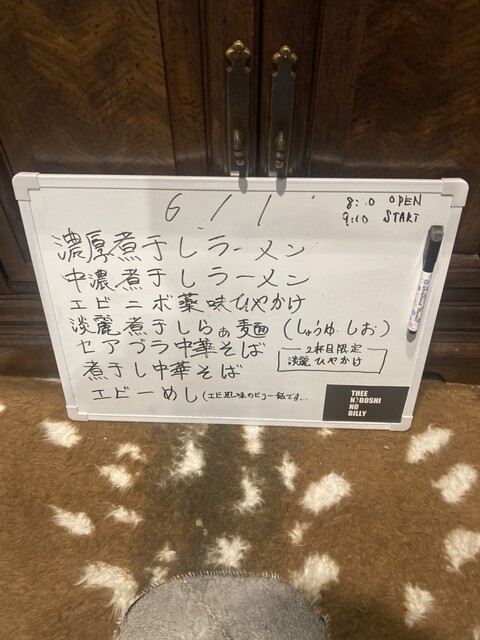 6/1
8:10 OPEN
9:10 START
濃厚煮干しラーメン
中濃煮干しラーメン
エビニボ薬味ひやかけ
淡麗煮干しらぁ麺（しょうゆ・しお）
セアブラ中華そば
2杯目限定
淡麗ひやかけ
煮干し中華そば
エビーめし（エビ風味のビリー飯です…
THEE
NIBOSHI
NO
BILLY